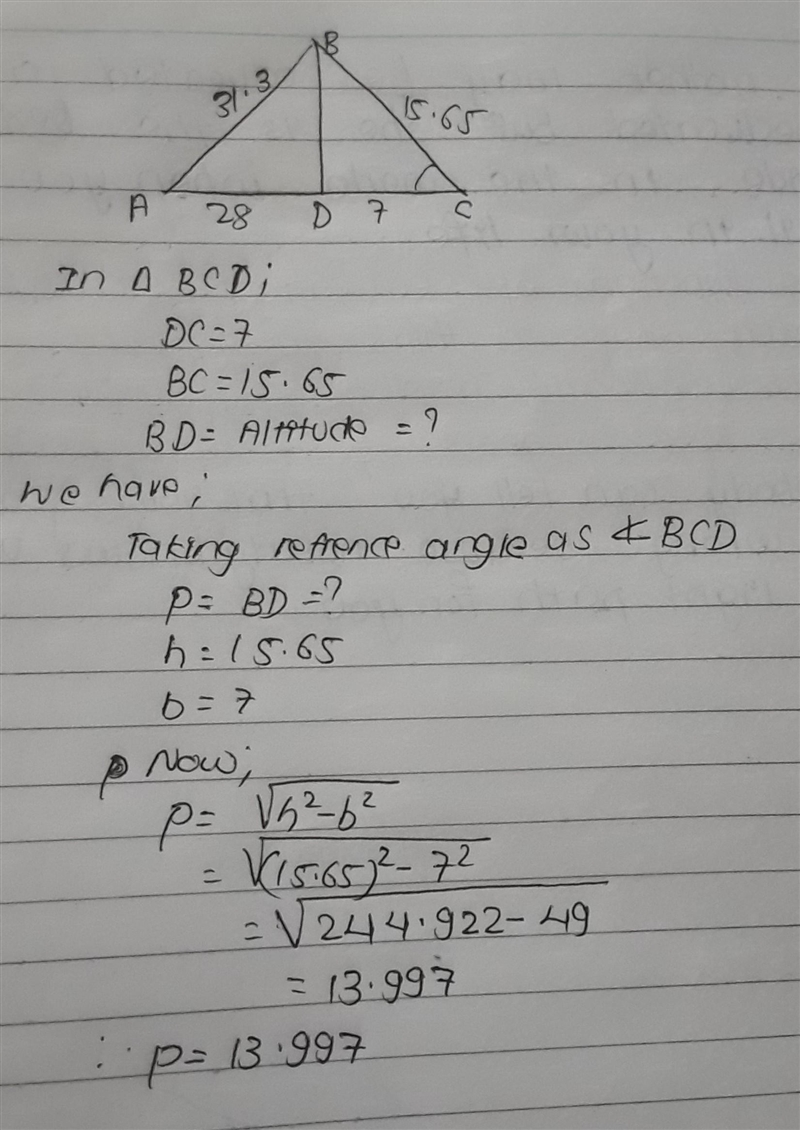 B
31.3
15.65
A 28 D 7 C
In Δ BCD;
DC=7
BC=15.65
BD= Altitude = ?
we have;
Taking refrence angle as ∠ BCD
p= BD=?
h=15.65
b=7
p Now;
p= √h²-b²
= √(15.65)²-7²
=√244.922-49
=13.997
∴ p=13.997